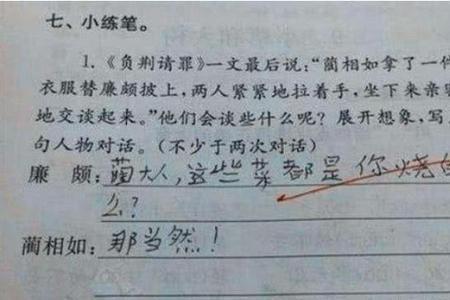 七、小练笔。
1.《负荆请罪》一文最后说:“蔺相如拿了一件
衣服替廉颇披上,两人紧紧地拉着手,坐下来亲
地交谈起来。”他们会谈些什么呢?展开想象,写
句人物对话。(不少于两次对话)
廉 颇:蔺大人,这些菜都是你烧的
么?
蔺相如:那当然!